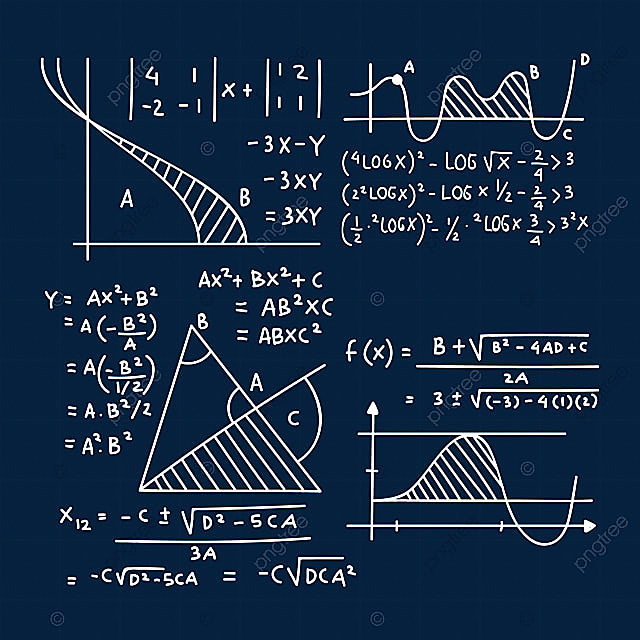 |4 1| x + |1 2|
|-2 -1| |1 1|
-3X-Y
-3XY
= 3XY
A
B
A
B
C
D
(⁴LOGX)² - LOG √X - 2/4 > 3
(2²LOGX)² - LOG X 1/2 - 2/4 > 3
(1/2 · ²LOGX)² - 1/2 · ²LOGX 3/4 > 3²X
AX² + BX² + C
= AB²XC
= ABXC²
Y = AX² + B²
= A(-B²/A)
= A(-B²/1/2)
= A.B²/2
= A².B²
B
A
C
f(x) = B + √B² - 4AD + C / 2A
= 3 ± √(-3) - 4(1)(2)
X₁₂ = -C ± √D² - 5CA / 3A
= -C√D² - 5CA = -C√DCA²
pngtree